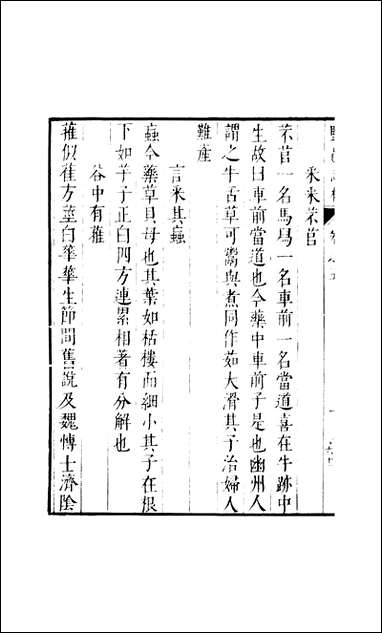 采采芣苢
芣苢一名馬舄一名車前一名當道喜在牛跡中
生故曰車前當道也今藥中車前子是也幽州人
謂之牛舌草可鬻與煮同作茹大滑其子治婦人
難產
言采其蝱
蝱今藥草貝母也其葉如栝樓而細小其子在根
下如芋子正白四方連累相著有分解也
谷中有蓷
蓷似萑方莖白華華生節間舊說及魏博士濟陰